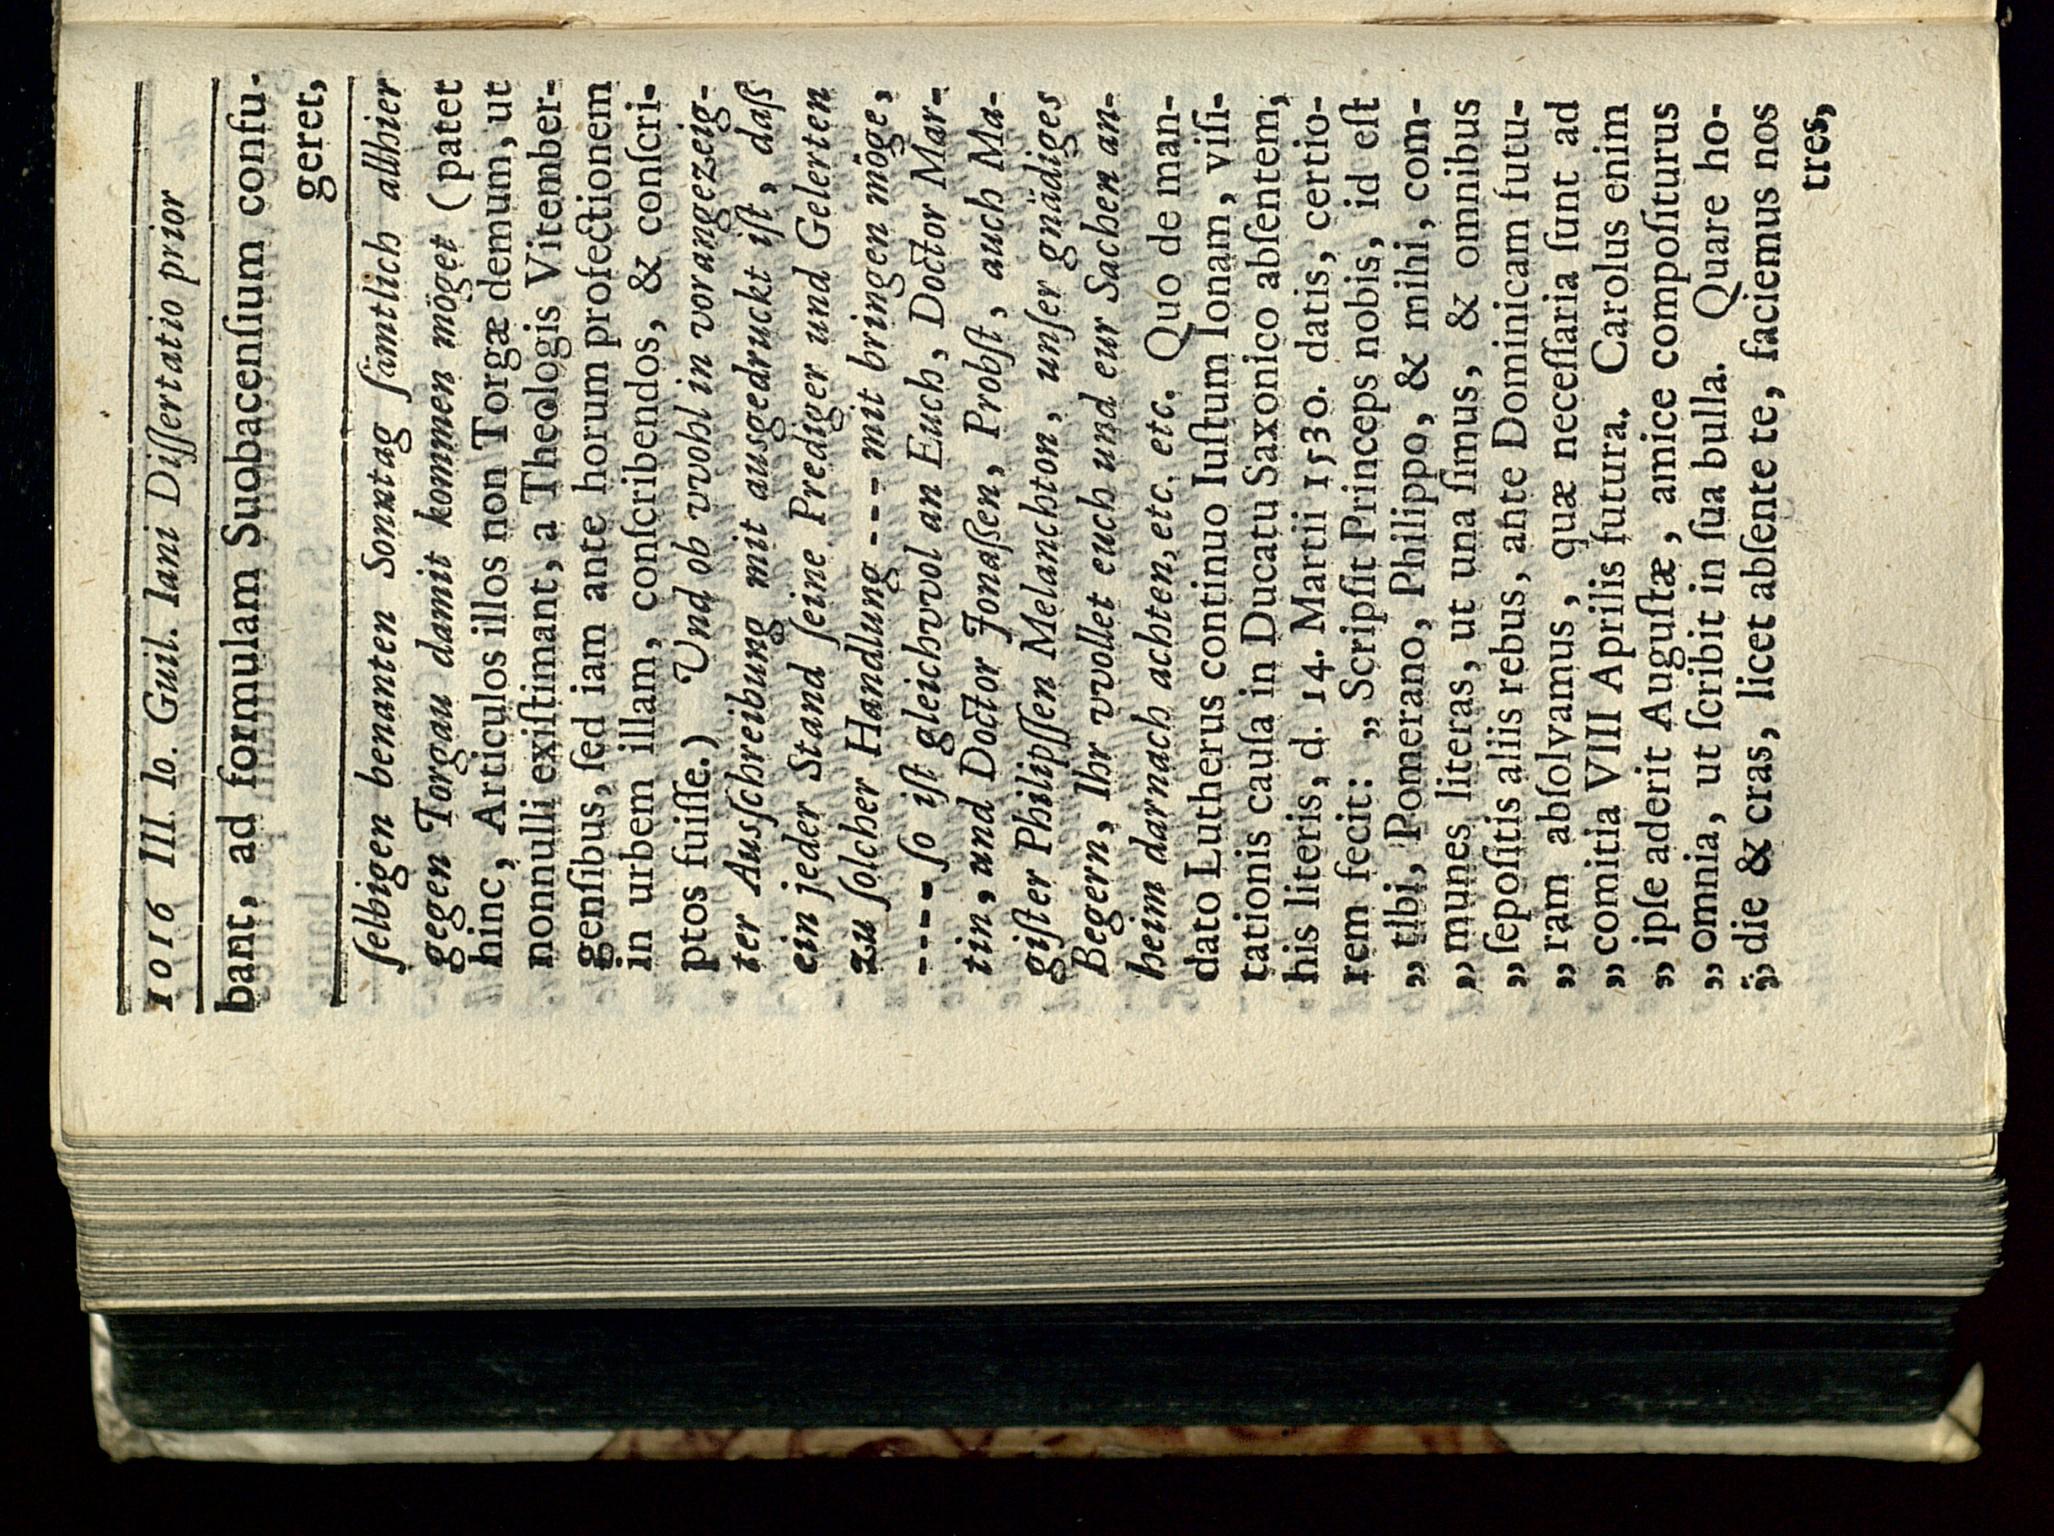 1016 III. Io. Guil. Iani Diſſertatio prior
bant, ad formulam Suobacenſium conſu-
geret,
ſelbigen benanten Sonntag ſämtlich allhier
gegen Torgau damit kommen möget (patet
hinc, Articulos illos non Torgæ demum, ut
nonnulli exiſtimant, a Theologis Vitember-
genſibus, ſed iam ante horum profectionem
in urbem illam, conſcribendos, & conſcri-
ptos fuiſſe.) Und ob vvohl in vorangezeig-
ter Ausſchreibung mit ausgedruckt iſt, daß
ein jeder Stand ſeine Prediger und Gelerten
zu ſolcher Handlung --- mit bringen möge,
---- ſo iſt gleichvvol an Euch, Doctor Mar-
tin, und Doctor Jonaßen, Probſt, auch Ma-
giſter Philipſſen Melanchton, unſer gnädiges
Begern, Ihr vvollet euch und eur Sachen an-
heim darnach achten, etc. etc. Quo de man-
dato Lutherus continuo Iuſtum Ionam, viſi-
tationis cauſa in Ducatu Saxonico abſentem,
his literis, d. 14. Martii 1530. datis, certio-
rem fecit: „Scripſit Princeps nobis, id eſt
„tibi, Pomerano, Philippo, & mihi, com-
„munes literas, ut una ſimus, & omnibus
„ſepoſitis aliis rebus, ante Dominicam futu-
„ram abſolvamus, quæ neceſſaria ſunt ad
„comitia VIII Aprilis futura. Carolus enim
„ipſe aderit Auguſtæ, amice compoſiturus
„omnia, ut ſcribit in ſua bulla. Quare ho-
„die & cras, licet abſente te, faciemus nos
tres,